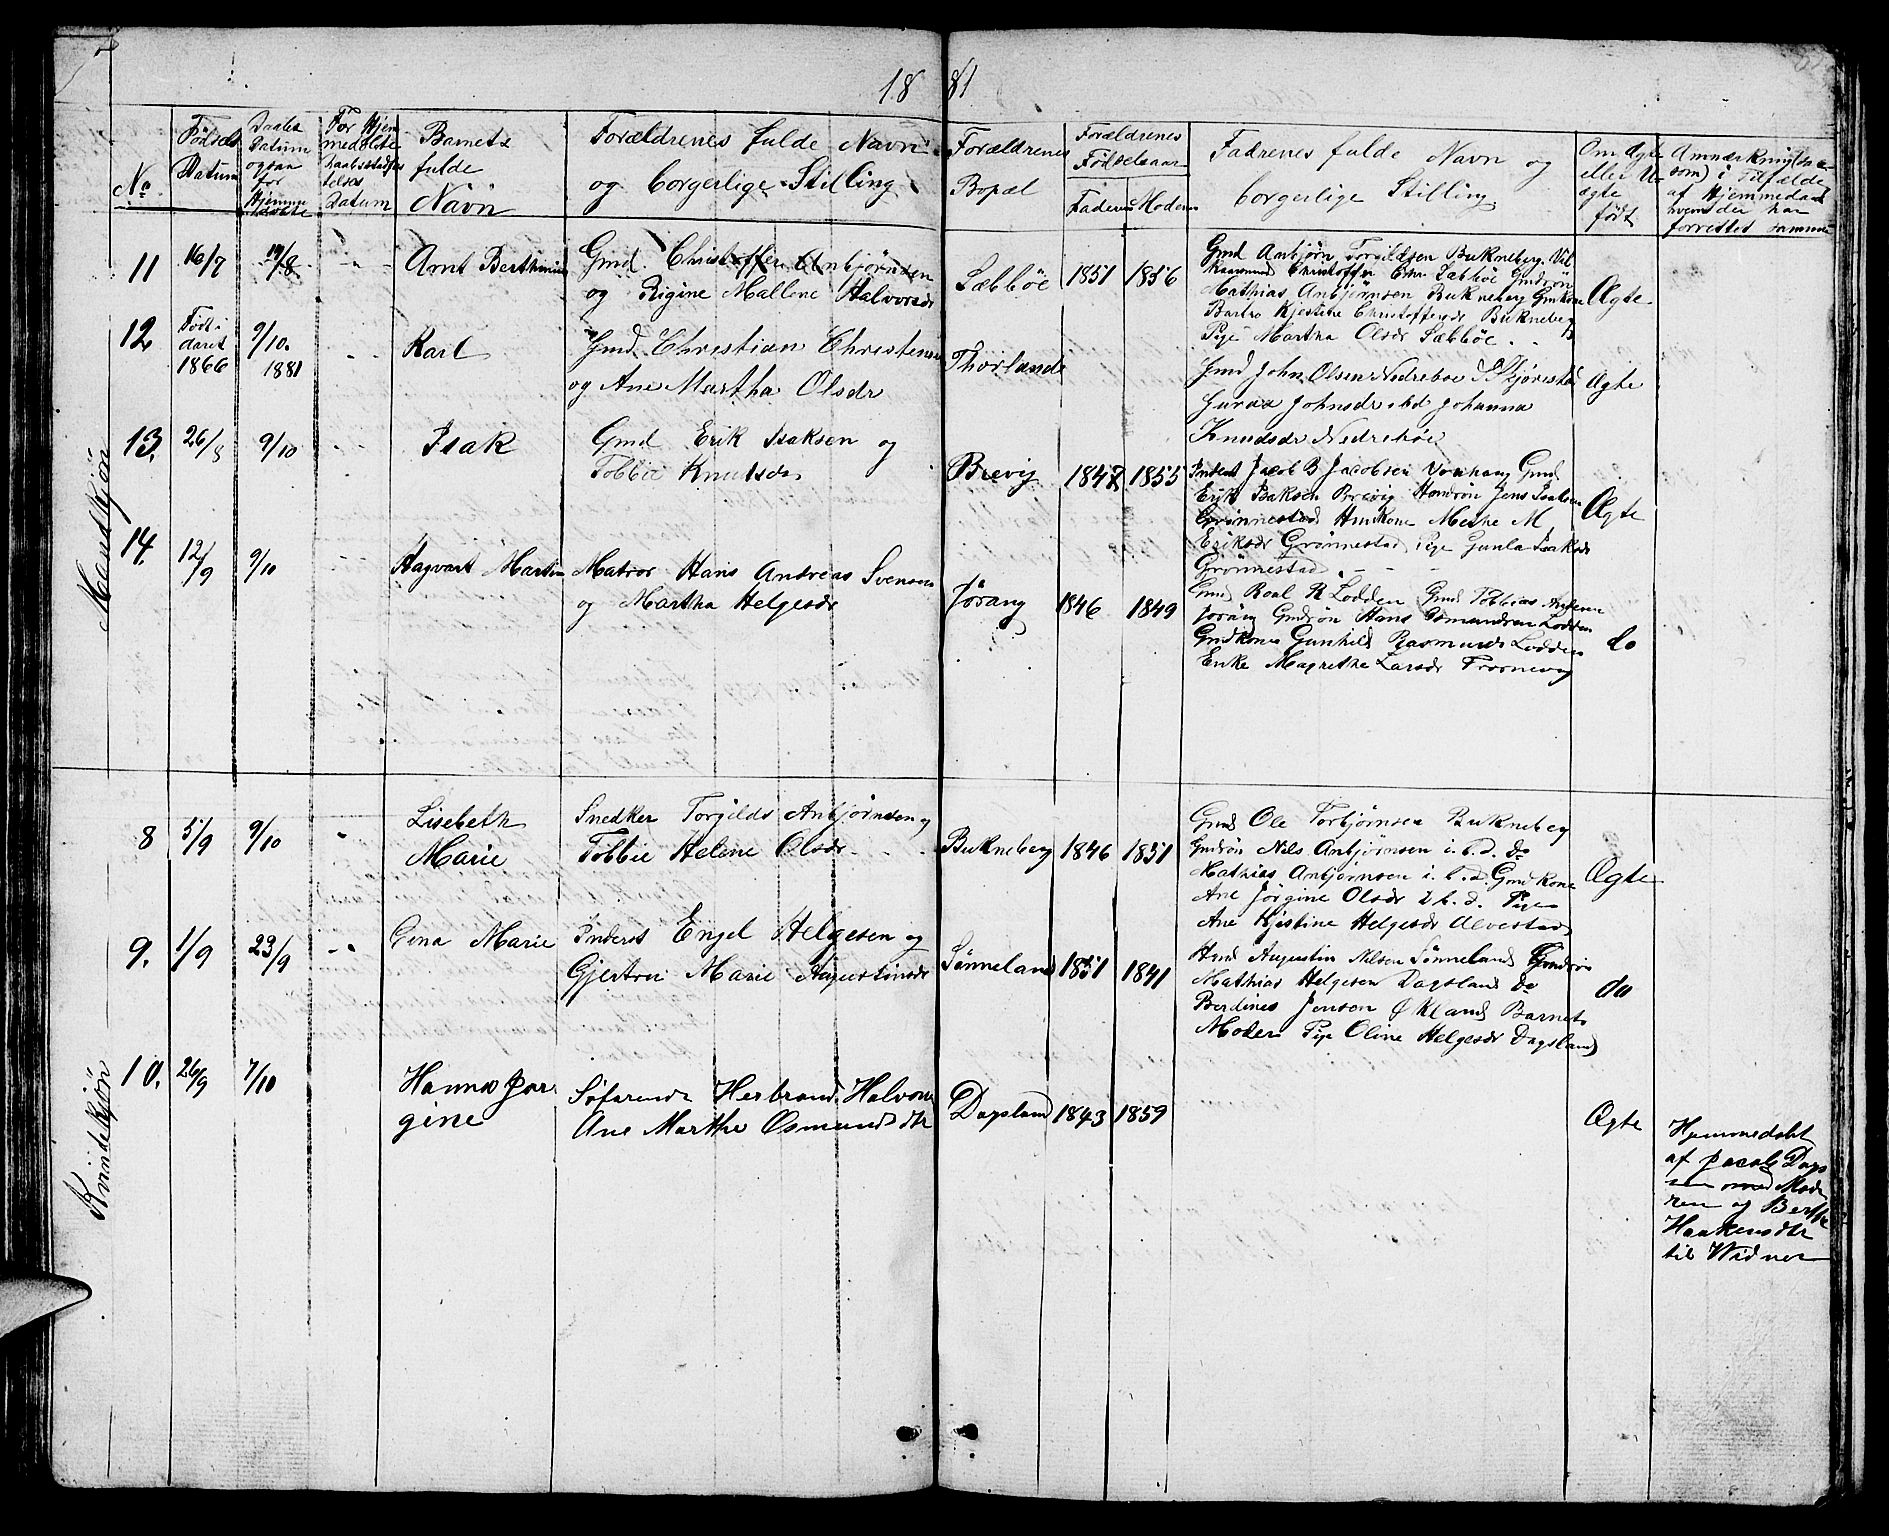 18 81
No
Födsels
Datum
Daabs
Datum
ogsaa
for
Hjemme
døbte
For Hjem
medøbte
Daabsstadfæs
telses
Datum
Barnets
fulde
Navn
Forældrenes fulde Navn
og borgerlige Stilling
Forældrenes
Bopæl
Forældrenes
Fødselsaar
Faderens Moderens
Fadrenes fulde Navn og
borgerlige Stilling
Om Ægte
eller U-
ægte
født
Anmærkninger
som i Tilfælde
af Hjemmedaab
hvem der har
forrettet samme
Mandkjön
11 16/7 14/8 Arnt Berthinius
Gmd Christoffer Anbjörnsen
og Rigine Mallene Halvorsdr
Sæbböe 1851 1856
Gmd Anbjørn Torgildsen Bukneberg
Christoffer Sæbböe Gmdrön
Mathias Anbjørnsen Bukneberg Gmkone
Kjestine Christoffersdr Bukneberg
Pige Martha Olsdr Sæbböe
Ægte
12 Födt i
Aaret
1866
9/10
1881
Karl
Gmd Christian Christensen
og Ane Martha Olsdr
Thorland
Gmd John Olsen Nedreboe
Johnsdr ibd Johanna
Knudsdr Nedreböe
Ægte
13. 26/8 9/10 Isak
Gmd Erik Isaksen og
Tobbie Knutsdr
Brevig 1847 1855
Inderst Jacob B Jacobsen Gmd
Erik Isaksen Brevig Jens Isaksen
Grönnestad Hmkone M
Eriksdr Grönnestad Pige Gunla Isaksdr
Grönnestad
Ægte
14. 12/9 9/10 Hagvart Martin
Matros Hans Andreas Svensen
og Martha Helgesdr
Jörang 1846 1849
Gmd Roal R Lodden Gmd Tobbias
Jorang Gmdrön Hans Osmundsen Lodden
Gmdkone Gunhild Rasmusdr Lodden
Enke Magrethe Larsdr
do
Kvindekjön
8 5/9 9/10 Lisebeth
Marie
Snedker Torgilds Anbjørnsen og
Tobbie Helene Olsdr
Bukneberg 1846 1851
Gmd Ole Torbjørnsen Bukneberg
Gmdrön Nils Anbjørnsen i. b. d. do
Mathias Anbjørnsen i. b. d Gmdkone
Ane Jörgine Olsdr i b. d. Pige
Ane Kjistine Helgesdr Alvestad
Ægte
9. 1/9 23/9 Gina Marie
Inderst Engel Helgesen og
Gjertru Marie Augustinsdr
Sönneland 1851 1841
Hmd Augustin Nilsen Sönneland Gmdrön
Mathias Helgesen Dagsland do
Berdines Jonsen Økland Barnets
Moder Pige Oline Helgesdr Dagsland
do
10. 26/9 7/10 Hanna Jör
gine
Söfarende Herbrand Halvors
Ane Marthe Osmundsdtr
Dagsland 1843 1859
Ægte
Hjemmedøbt
af Jacob Dags
land med Mod
ren og Berthe
Haakensdtr
til Widner